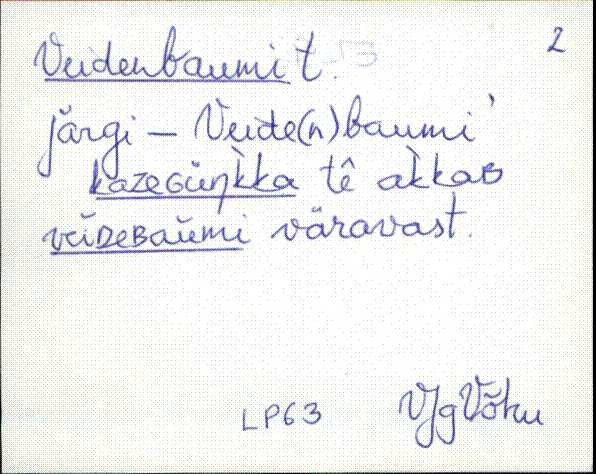 2
Veidenbaumi t.
järgi – Veide(n)baumi'
kazeGüŋk̀ka tê ak̀kaB
veiDEBaumi väravast.
LP63 VJg Võhu